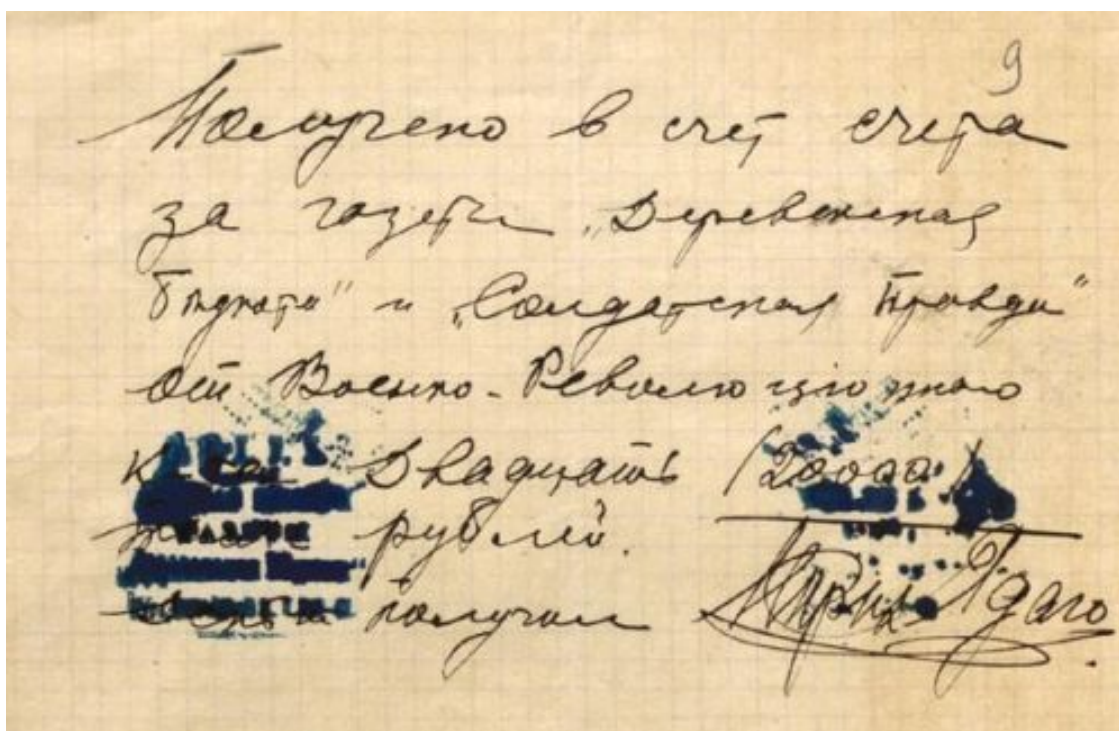 9
Получено в счет счета
за газеты „Деревенская
Бѣднота" и „Солдатская Правда"
от Военно-Революціонного
к-та Двадцать (20000)
рублей.
получил